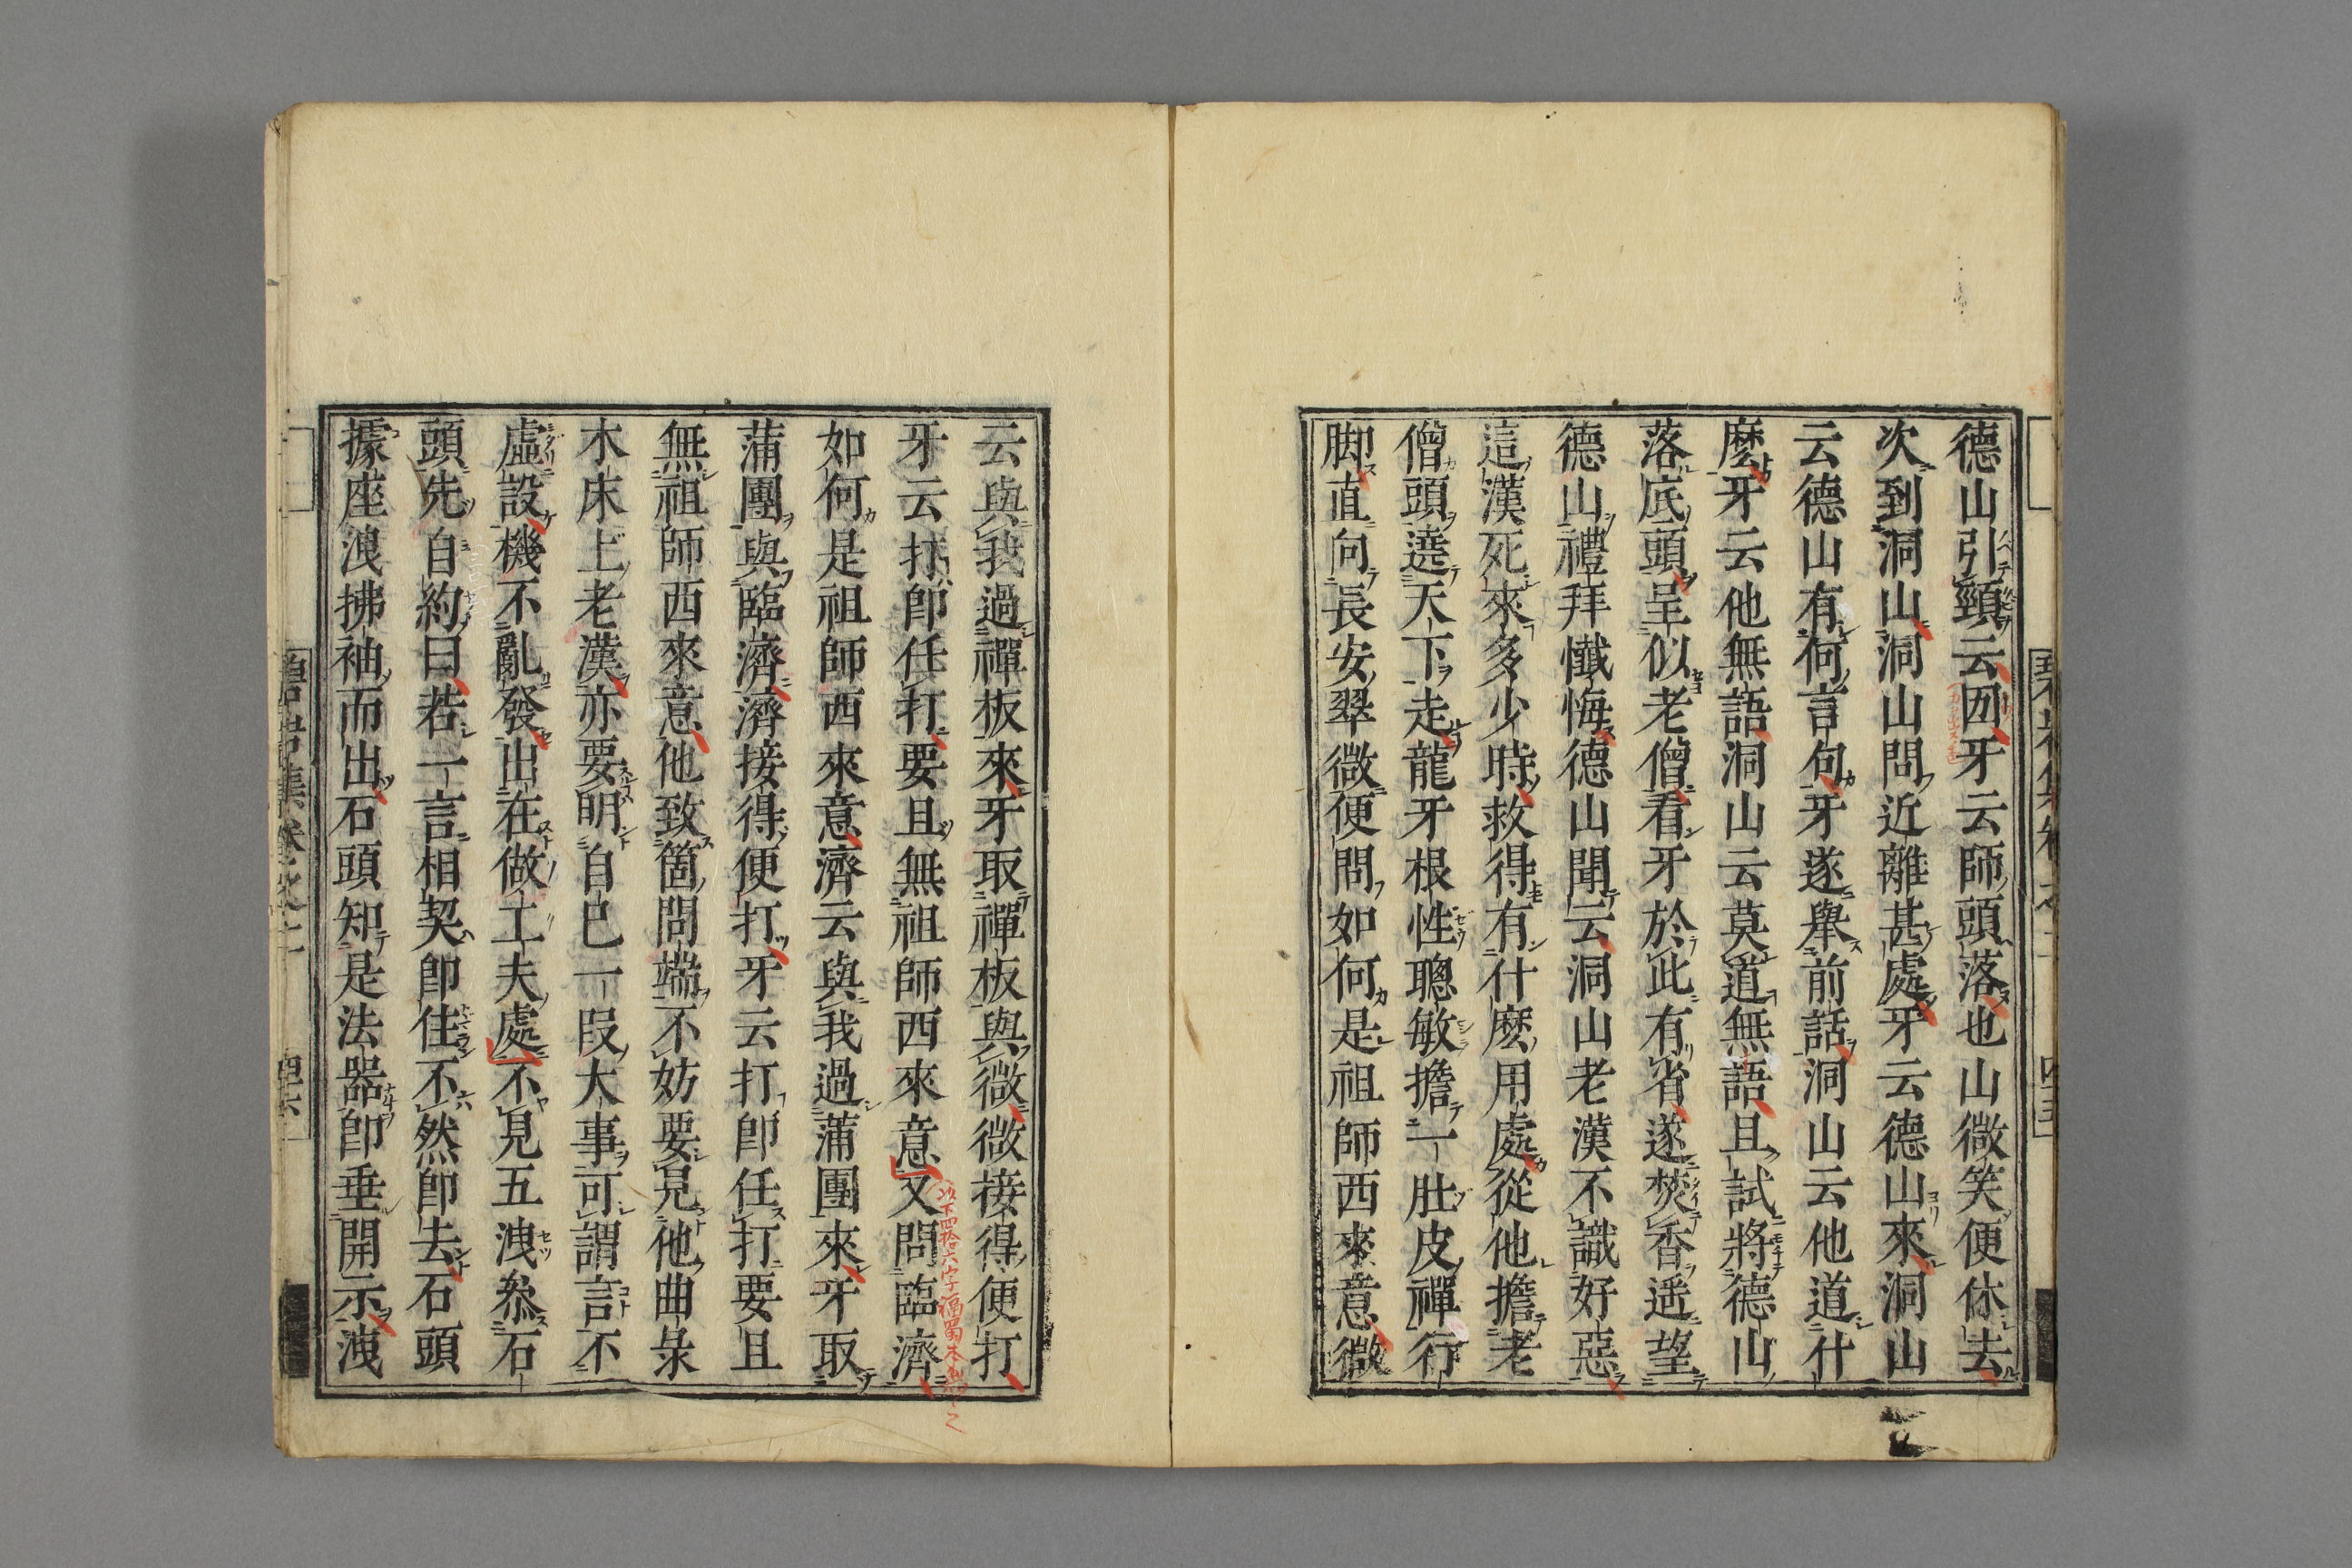 德山引頸云㘞牙云師頭落也山微笑便休去
次到洞山洞山問近離甚處牙云德山來洞山
云德山有何言句牙遂舉前話洞山云他道什
麽牙云他無語洞山云莫道無語且試將德山
落底頭呈似老僧看牙於此有省遂焚香遥望
德山禮拜懺悔德山聞云洞山老漢不識好惡
這漢死來多少時救得有什麽用處從他擔老
僧頭遶天下走龍牙根性聰敏擔一肚皮禪行
脚直向長安翠微便問如何是祖師西來意微
云與我過禪板來牙取禪板與微微接得便打
牙云打卽任打要且無祖師西來意又問臨濟
如何是祖師西來意濟云與我過蒲團來牙取
蒲團與臨濟濟接得便打牙云打卽任打要且
無祖師西來意他致箇問端不妨要見他曲彔
木床上老漢亦要明自己一段大事可謂言不
虛設機不亂發出在做工夫處不見五洩叅石
頭先自約曰若一言相契卽住不然卽去石頭
據座洩拂袖而出石頭知是法器卽垂開示洩
碧岩集卷之二
以下四拾六字福蜀本無之